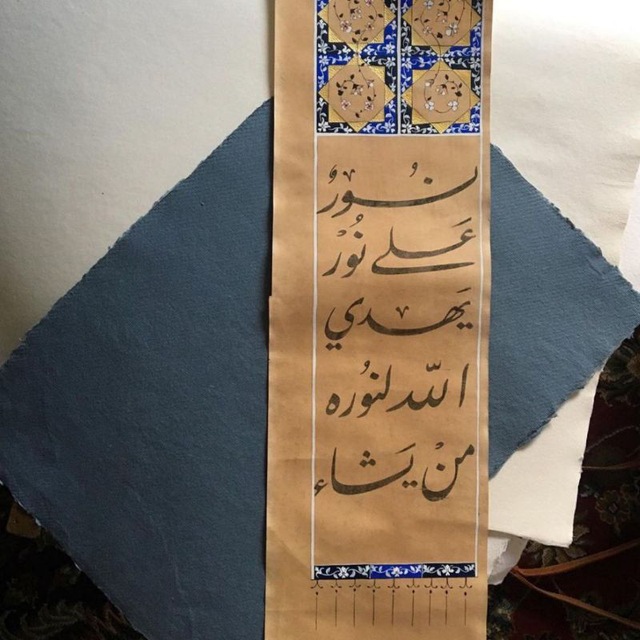 نُورٌ
عَلے نُورْ
يَهدي
اللّه لنُوره
مَنْ يَشاء